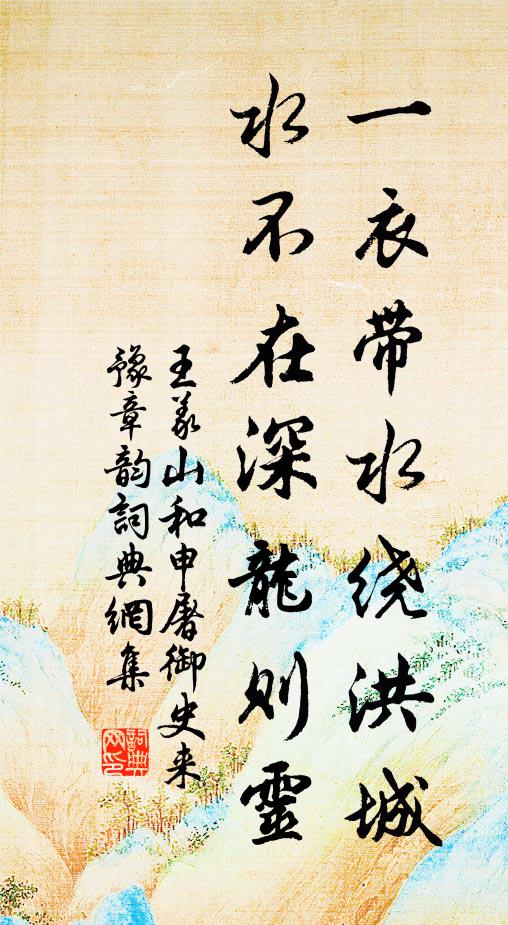 一衣带水绕洪城
水不在深龍则靈
王义山和申屠御史来
豫章韵詞典網集
詞典